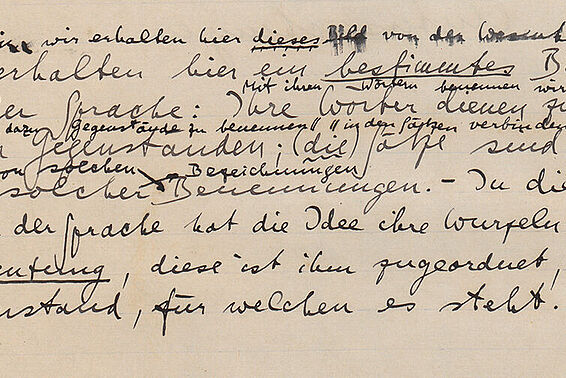 wir erhalten hier dieses Bild von der
erhalten hier ein bestimmtes B
Mit ihren Wörtern benennen wir
er Sprache: Ihre Wörter dienen zu
dazu Gegenstände zu benennen" "in den Sätzen verbinden
n Gegenständen; (die) Sätze sind
von solchen Bezeichnungen
solcher Benennungen. – In die
der Sprache hat die Idee ihre Wurzeln
eutung, diese ist ihm zugeordnet,
nstand, für welchen es steht.